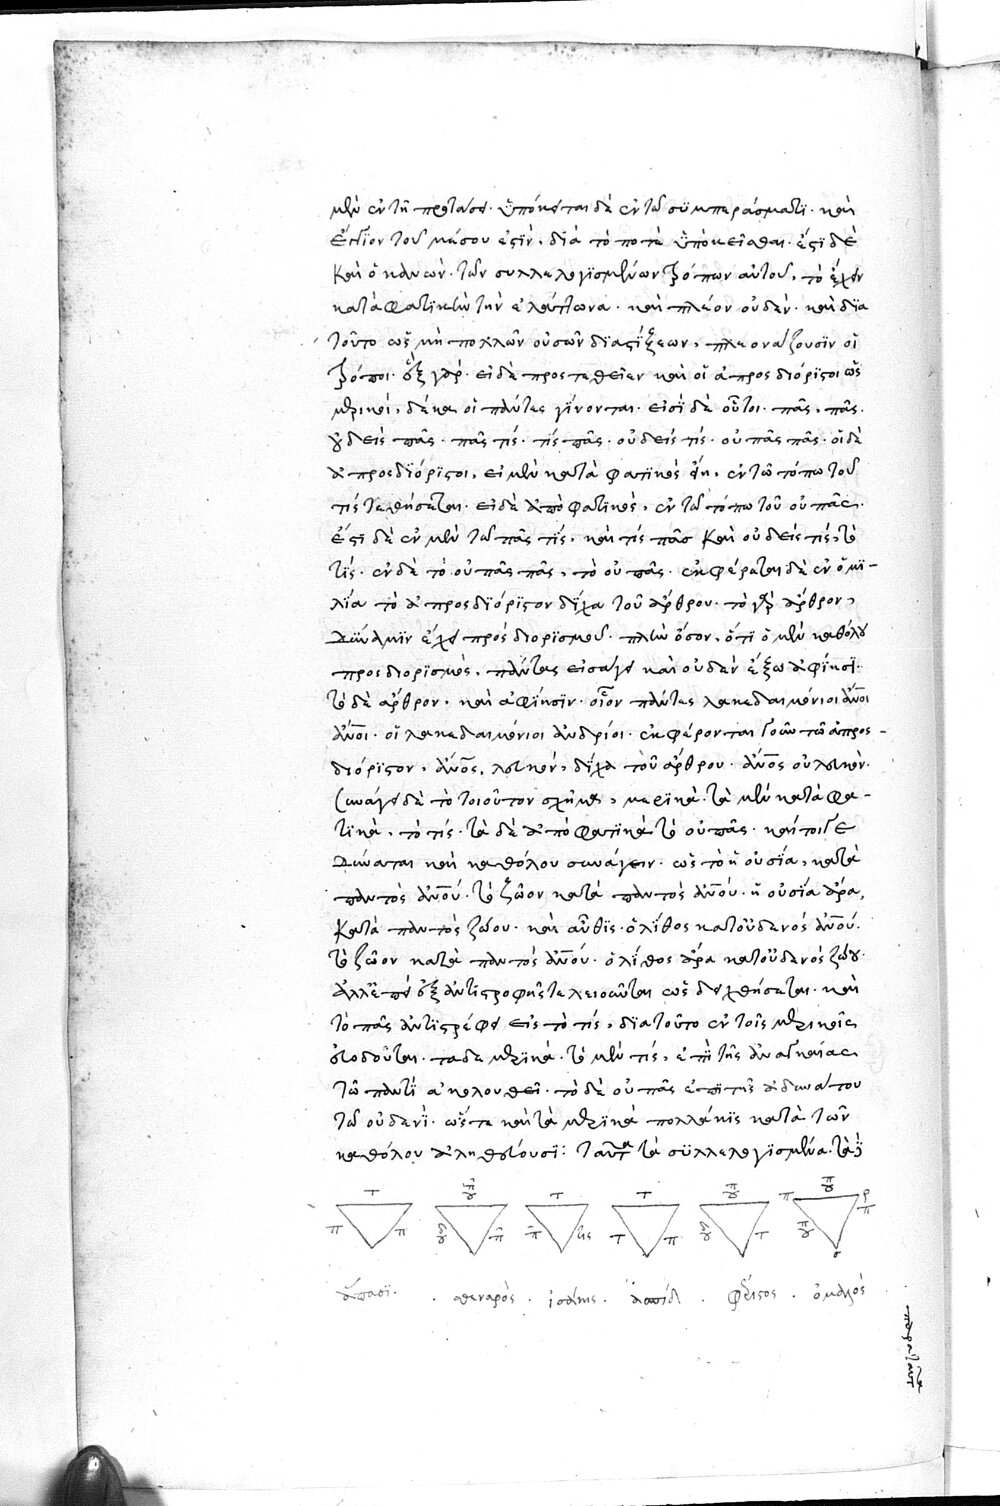 μὲν ἐν τῆ προτάσει. ὑπόκειται δὲ ἐν τῶ συμπεράσματι. καὶ
ἔσχατον τοῦ μέσου ἐστὶν, διὰ τὸ ποτὲ ὑποκεῖσθαι. ἔστι δὲ
καὶ ὁ κανὼν. τῶν συλλελογισμένων τρόπων αὐτοῦ, τὸ ἔχειν
καταφατικὴν τὴν ἐλάττωνα. καὶ πλέον οὐδέν. καὶ διὰ
τοῦτο ὡς μὴ πολλῶν οὐσῶν διατάξεων, πλεονάζουσιν οἱ
τρόποι. ἓξ γάρ. εἰ δὲ προστεθεῖεν καὶ οἱ ἀπροσδιόριστοι ὡς
μερικοί, δέκα οἱ πάντες γίνονται. εἰσὶ δὲ οὗτοι. πᾶς, πᾶς.
οὐδεὶς πᾶς. πᾶς τίς. τίς πᾶς. οὐδεὶς τίς. οὐ πᾶς πᾶς. οἱ δὲ
ἀπροσδιόριστοι, εἰ μὲν καταφατικὸς εἴη, ἐν τῶ τόπω τοῦ
τίς τεθήσεται. εἰ δὲ ἀποφατικὸς, ἐν τῶ τόπω τοῦ οὐ πᾶς.
ἔστι δὲ ἐν μὲν τῶ πᾶς τίς, καὶ τίς πᾶσ καὶ οὐδεὶς τίς, τὸ
τίς. ἐν δὲ τὸ οὐ πᾶς πᾶς, τὸ οὐ πᾶς. ἐκφέρεται δὲ ἐν ὁμι-
λία τὸ ἀπροσδιόριστον δίχα τοῦ ἄρθρου. τὸ γὰρ ἄρθρον,
δύναμιν ἔχει προσδιορισμοῦ. πλὴν ὅσον, ὅτι ὁ μὲν καθόλου
προσδιορισμὸς, πάντας εἰσάγει καὶ οὐδὲν ἔξω ἀφίησι.
τὸ δὲ ἄρθρον, καὶ ἀφίησιν. οἷον πάντες λακεδαιμόνιοι ἄνοι
ἄνοι. οἱ λακεδαιμόνιοι ἀνδρεῖοι. ἐκφέρονται γοῦν τῶ ἀπροσ-
διόριστον, ἄνος, λευκόν, δίχα τοῦ ἄρθρου. ἄνος οὐ λευκόν.
συνάγει δὲ τὸ τοιοῦτον σχῆμα, μερικά. τὰ μὲν καταφα-
τικὰ, τὸ τίς. τὰ δὲ ἀποφατικὰ τὸ οὐ πᾶς. καίτοι γε
δύναται καὶ καθόλου συνάγειν. ὡς τὸ ἡ οὐσία, κατὰ
παντὸς ἀνου. τὸ ζῶον κατὰ παντὸς ἀνου. ἡ οὐσία ἄρα,
κατὰ παντὸς ζώου. καὶ αὖθις. ὁ λίθος κατ οὐδενὸς ἀνου.
τὸ ζῶον κατὰ παντὸς ἀνου. ὁ λίθος ἄρα κατ οὐδενὸς ζώου.
ἀλλ ἐπεὶ ἐξ ἀντιστροφῆς τελειοῦται ὡς δειχθήσεται. καὶ
τὸ πᾶς ἀντιστρέφει εἰς τὸ τίς, διατοῦτο ἐν τοῖς μερικοῖς
τὸ μὲν τίς, ἐπὶ τῆς ἀναγκαίας
τῶ παντὶ ἀκολουθεῖ. τὸ δὲ οὐ πᾶς ἐπὶ τῆς ἀδυνάτου
τῶ οὐδενί. ὥστε καὶ τὰ μερικὰ πολλάκις κατὰ τῶν
καθόλου ἀληθεύουσι: ταῦτα τὰ συλλελογισμένα. τὰ
τ τ τ
π π
ἅπασι. σθεναρὸς. ἰσάκις. ἀσπίδι. ὁμαλὸς